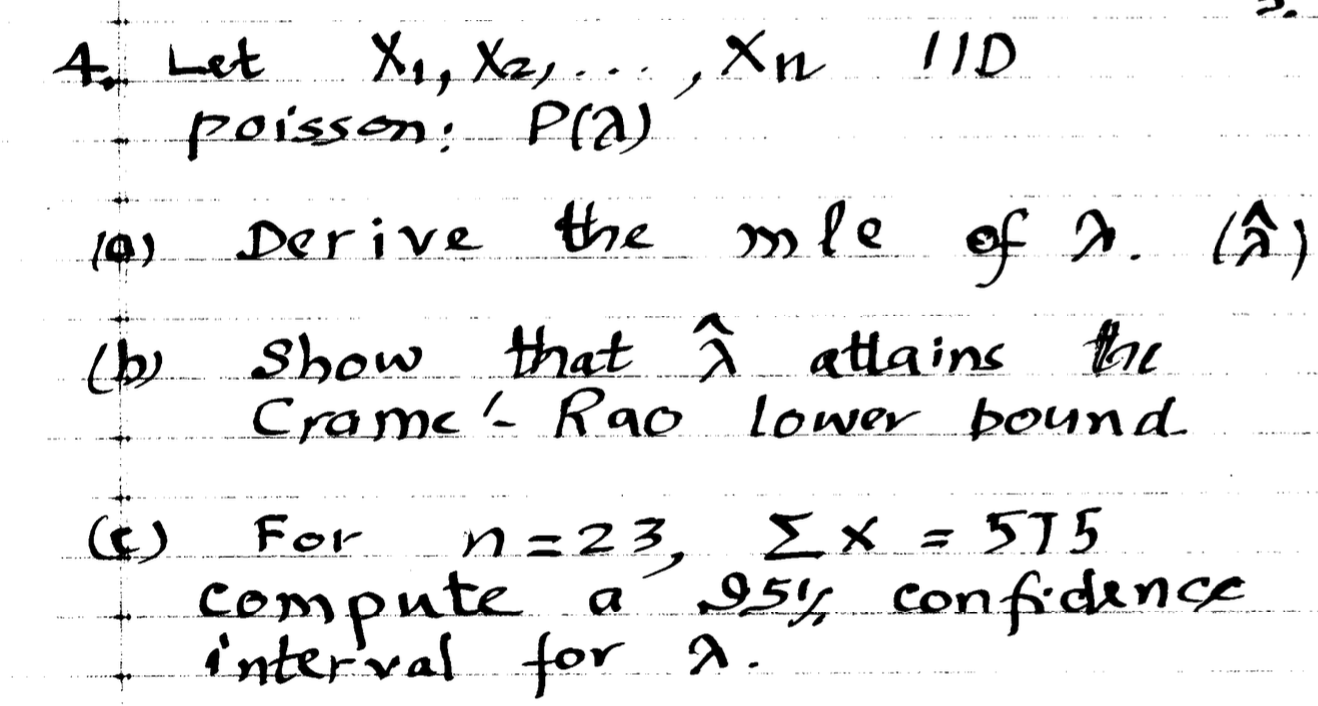 4. Let X₁, X₂, ..., Xn IID
poisson: P(λ)
(a) Derive the mle of λ. (λ̂)
(b) Show that λ̂ attains the
Crame'- Rao lower bound
(c) For n=23, Σx = 575
compute a 95% confidence
interval for λ.